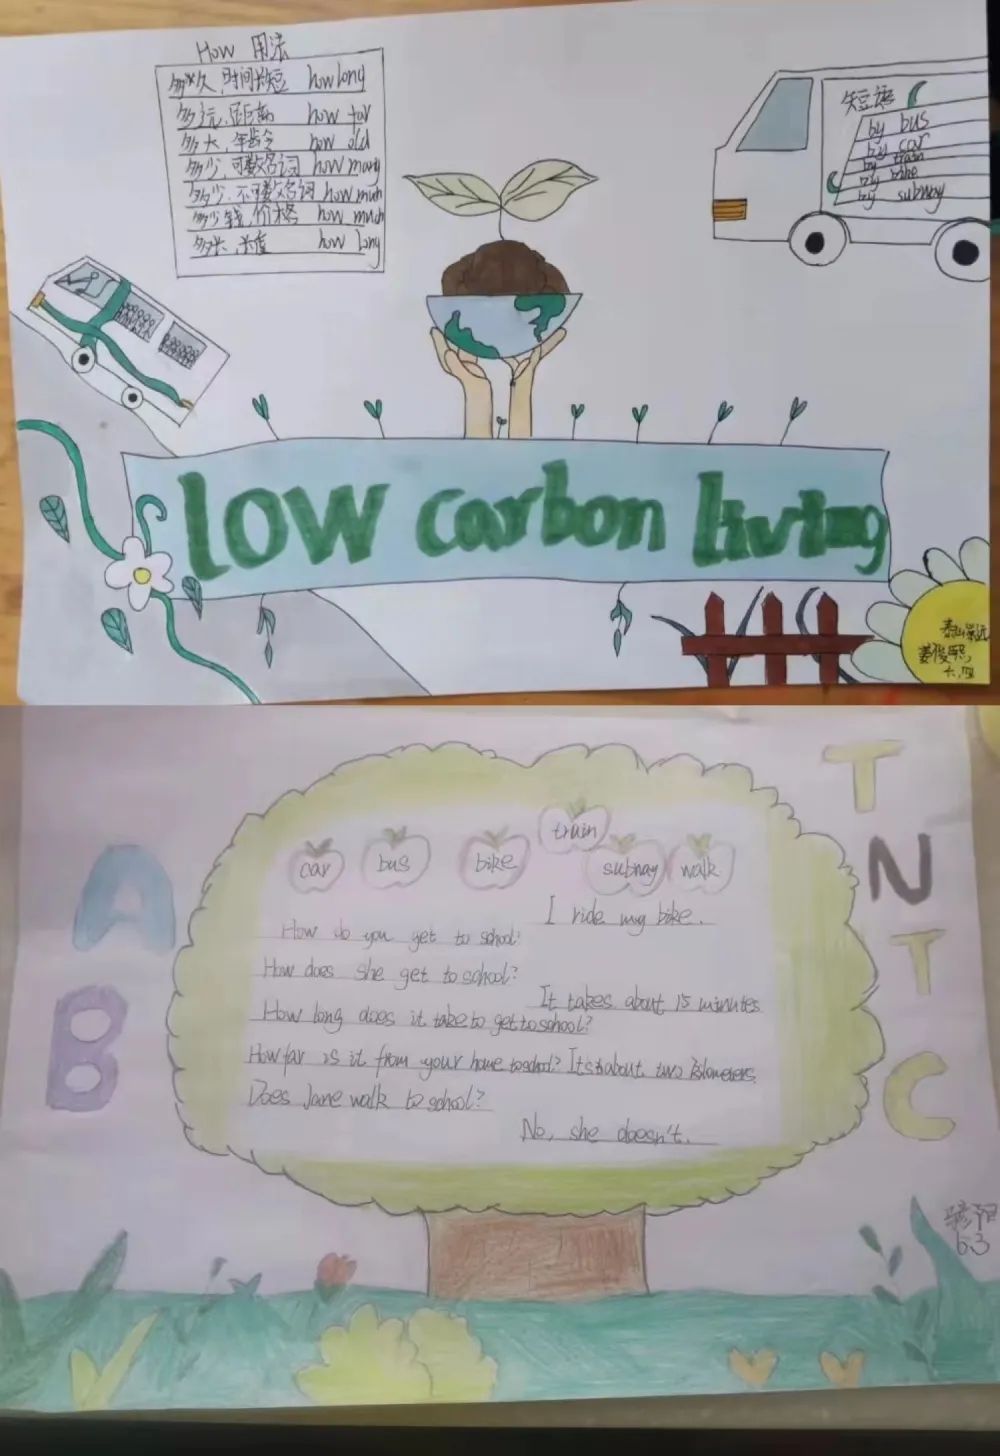 How 用法
多久,时间长短 how long
多远,距离 how far
多大,年龄 how old
多少,可数名词 how many
多少,不可数名词 how much
多少钱,价格 how much
多长,长度 how long
短语
by bus
by car
by train
by bike
by subway
low carbon living
姜俊熙,
六.四
T
N
T
C
A
B
train
car bus bike subway walk
I ride my bike.
How do you get to school?
How does she get to school?
It takes about 15 minutes
How long does it take to get to school?
How far is it from your home to school? It's about two kilometers.
Does Jane walk to school?
No, she doesn't.
6.3